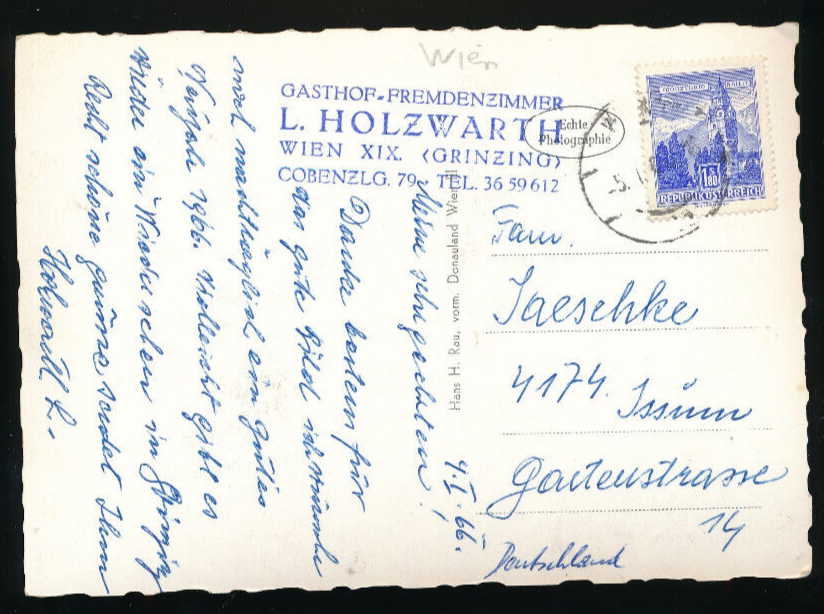 Wien
GASTHOF-FREMDENZIMMER
L. HOLZWARTH
WIEN XIX. (GRINZING)
COBENZLG. 79 - TEL. 36 59 612
Echte
Photographie
1.80
REPUBLIK ÖSTERREICH
Hans H. Rau, vorm. Donauland Wien
Fam.
Jaeschke
4174. Issum
Gartenstrasse
14
Deutschland
4.I.66.
Meine sehr geehrten!
Danke bestens für
das gute Bild ich wünsche
noch nachträglich ein gutes
Neujahr 1966. Vielleicht gibt es
wieder ein Wiedersehen in Grinzing
Recht schöne Grüsse sendet Ihnen
Holzwarth L.